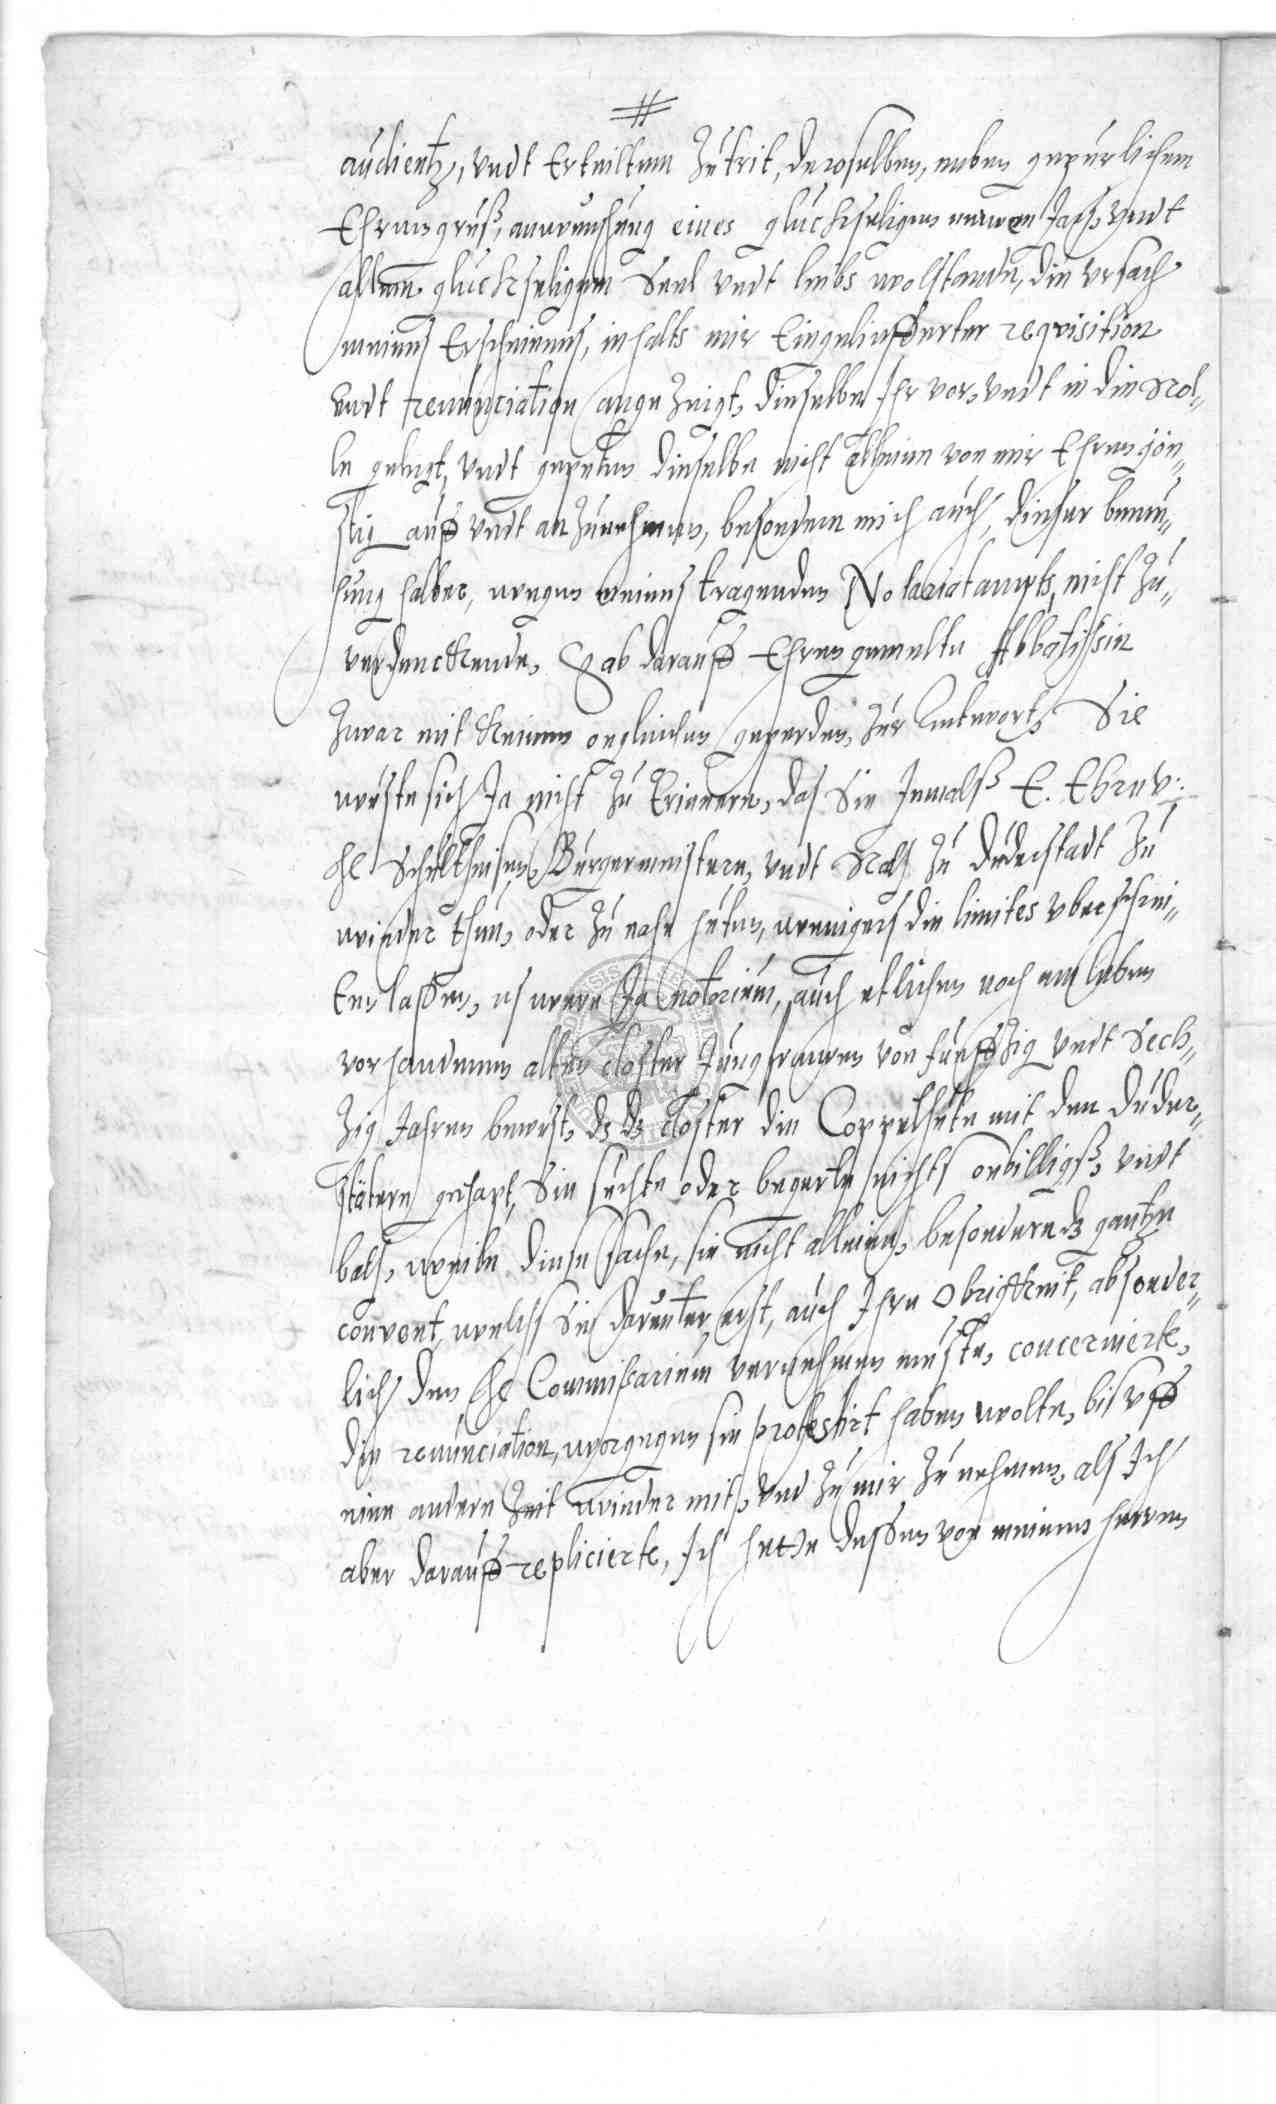 audientz, vndt Erteiltem Zutrit, deroselben, neben gepurlichem
Ehrengruß, anwunschung eines gluckseligen newen Jars, vndt
allem gluckseligem Seel vndt leibs wolstande, die vrsach
meines Erscheinens, inhalts mir Eingeliefferter requisition
vndt renunciation angezeigt, dieselbe Ihr vor, vndt in die Stol„
le gelegt, vndt gepeten dieselbe nicht alleine von mir Ehrengön„
stig auff vndt anzunehmen, besondern mich auch, dieser bemu„
hung halber, wegen meines tragenden Notariatampts, nicht zu„
verdenckende, Gab darauff Ehrengemelte Abbatissin
zwar mit keinen ongleichen geperden, zur Antwort, Sie
wuste sich Ja nicht zu Erinnern, das Sie Jemalß E. Ehrnv:
H Schultheisen, Burgermeistern, vndt Rath zu Duderstadt zu
wieder thun, oder zu nahe huten, wenigers die limites vberschrei„
ten lassen, es were Ja notorium, auch etlichen noch am leben
vorhandenen alten closter Jungfrawen von funffzig vndt Sech„
zig Jahren bewust, ds ds closter die Coppelhute mit den Duder„
stätern gehapt, Sie suchte oder begerte nichts onbilligß, vndt
bath, weile diese sache, sie nicht alleine, besondern ds gantze
convent, welchs Sie darunter erst, auch Ihre Obrigkeit, absonder„
lich den H Commissarium vernehmen muste, concernierte,
die renunciation, worgegen sie protestirt haben wolte, bis vff
eine andere Zeit wieder mit, vnd zu mir zu nehmen, als Ich
aber darauff replicierte, Ich hette dessen von meinen herren